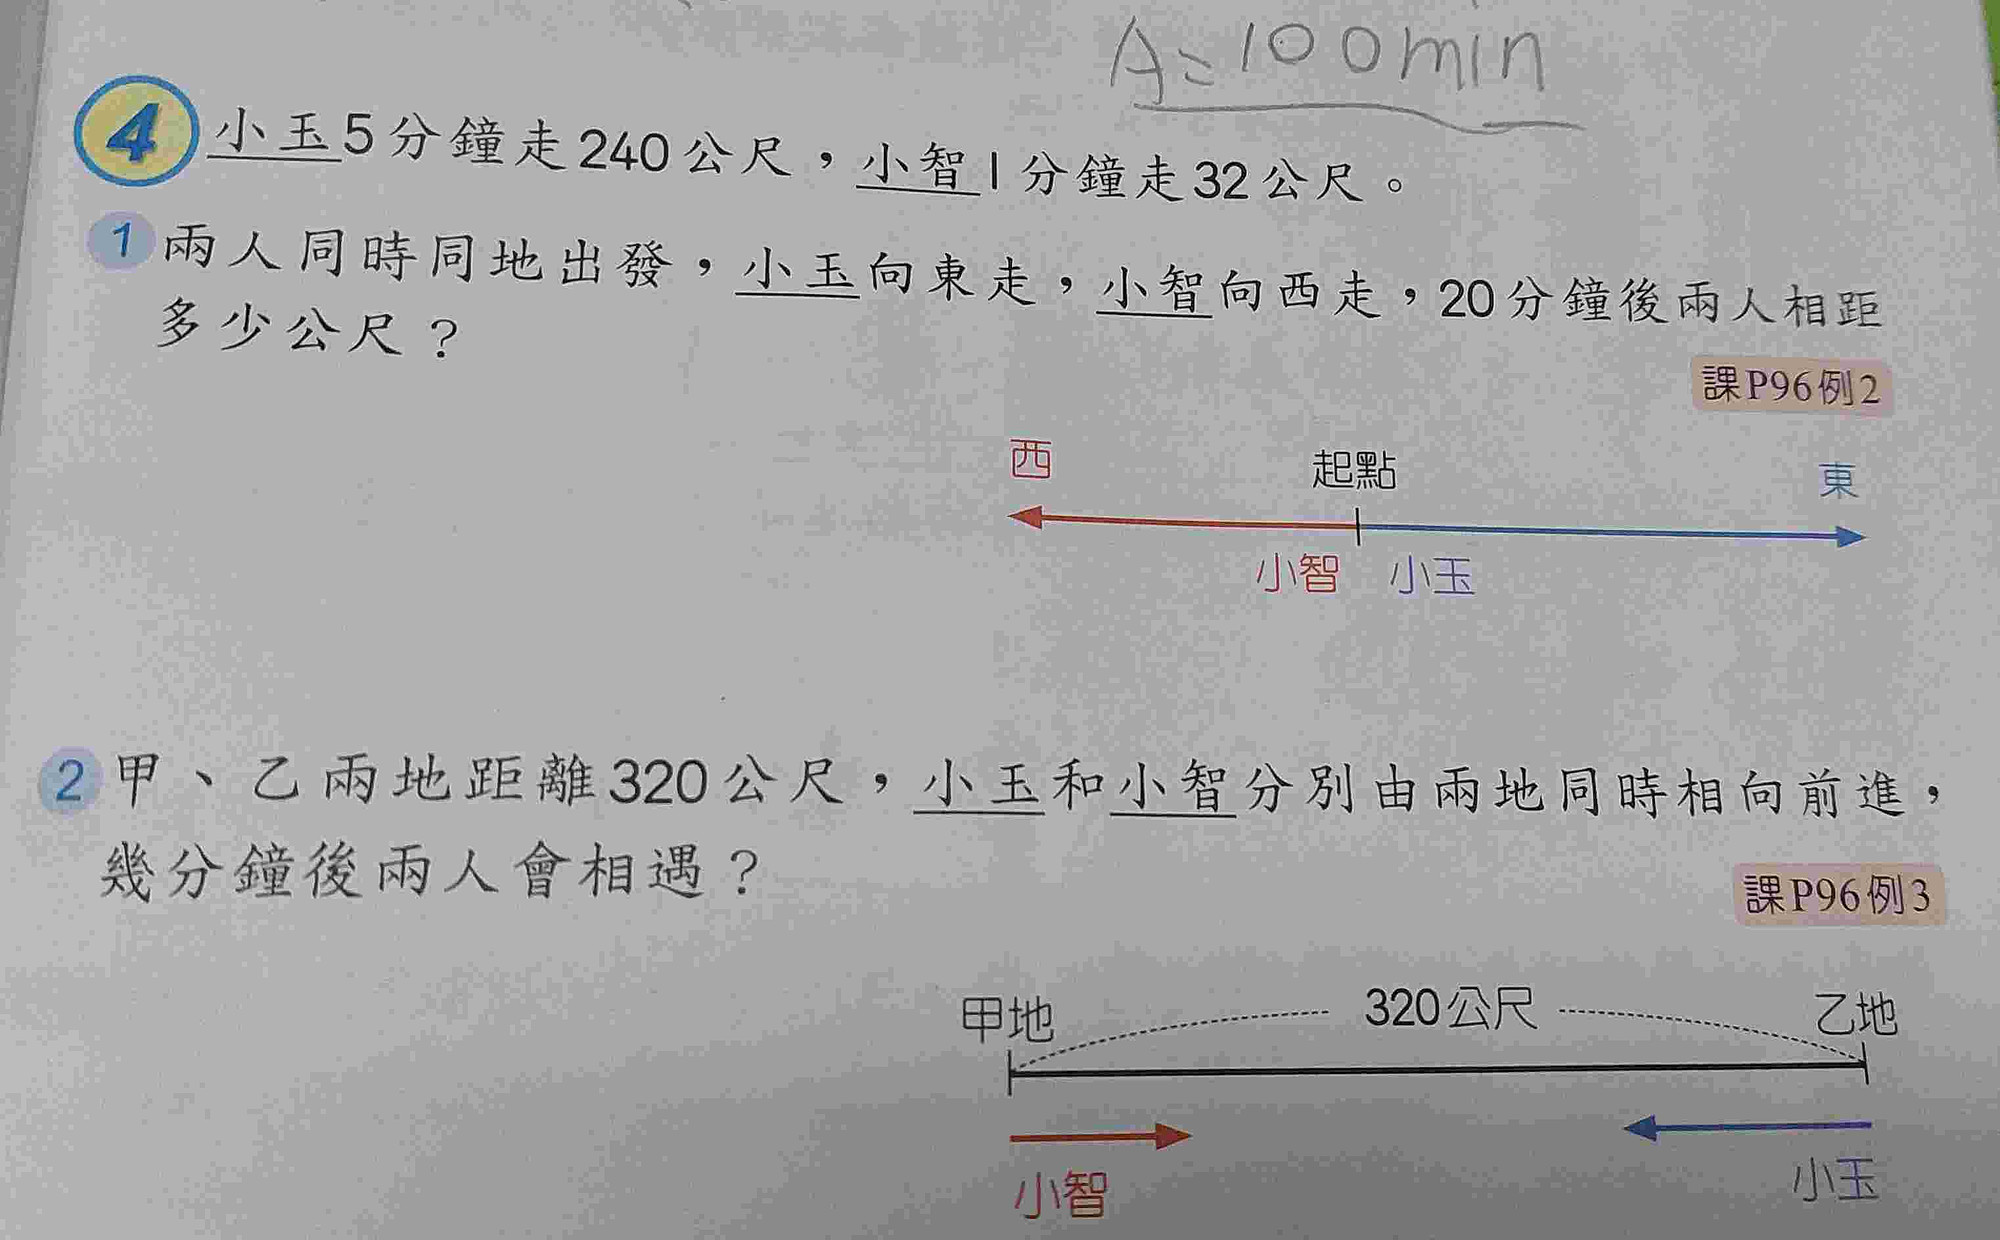 A=100min
4 小玉5分鐘走240公尺，小智1分鐘走32公尺。
1 兩人同時同地出發，小玉向東走，小智向西走，20分鐘後兩人相距
多少公尺？
課P96例2
西 起點 東
小智 小玉
2 甲、乙兩地距離320公尺，小玉和小智分別由兩地同時相向前進，
幾分鐘後兩人會相遇？
課P96例3
甲地 320公尺 乙地
小智 小玉